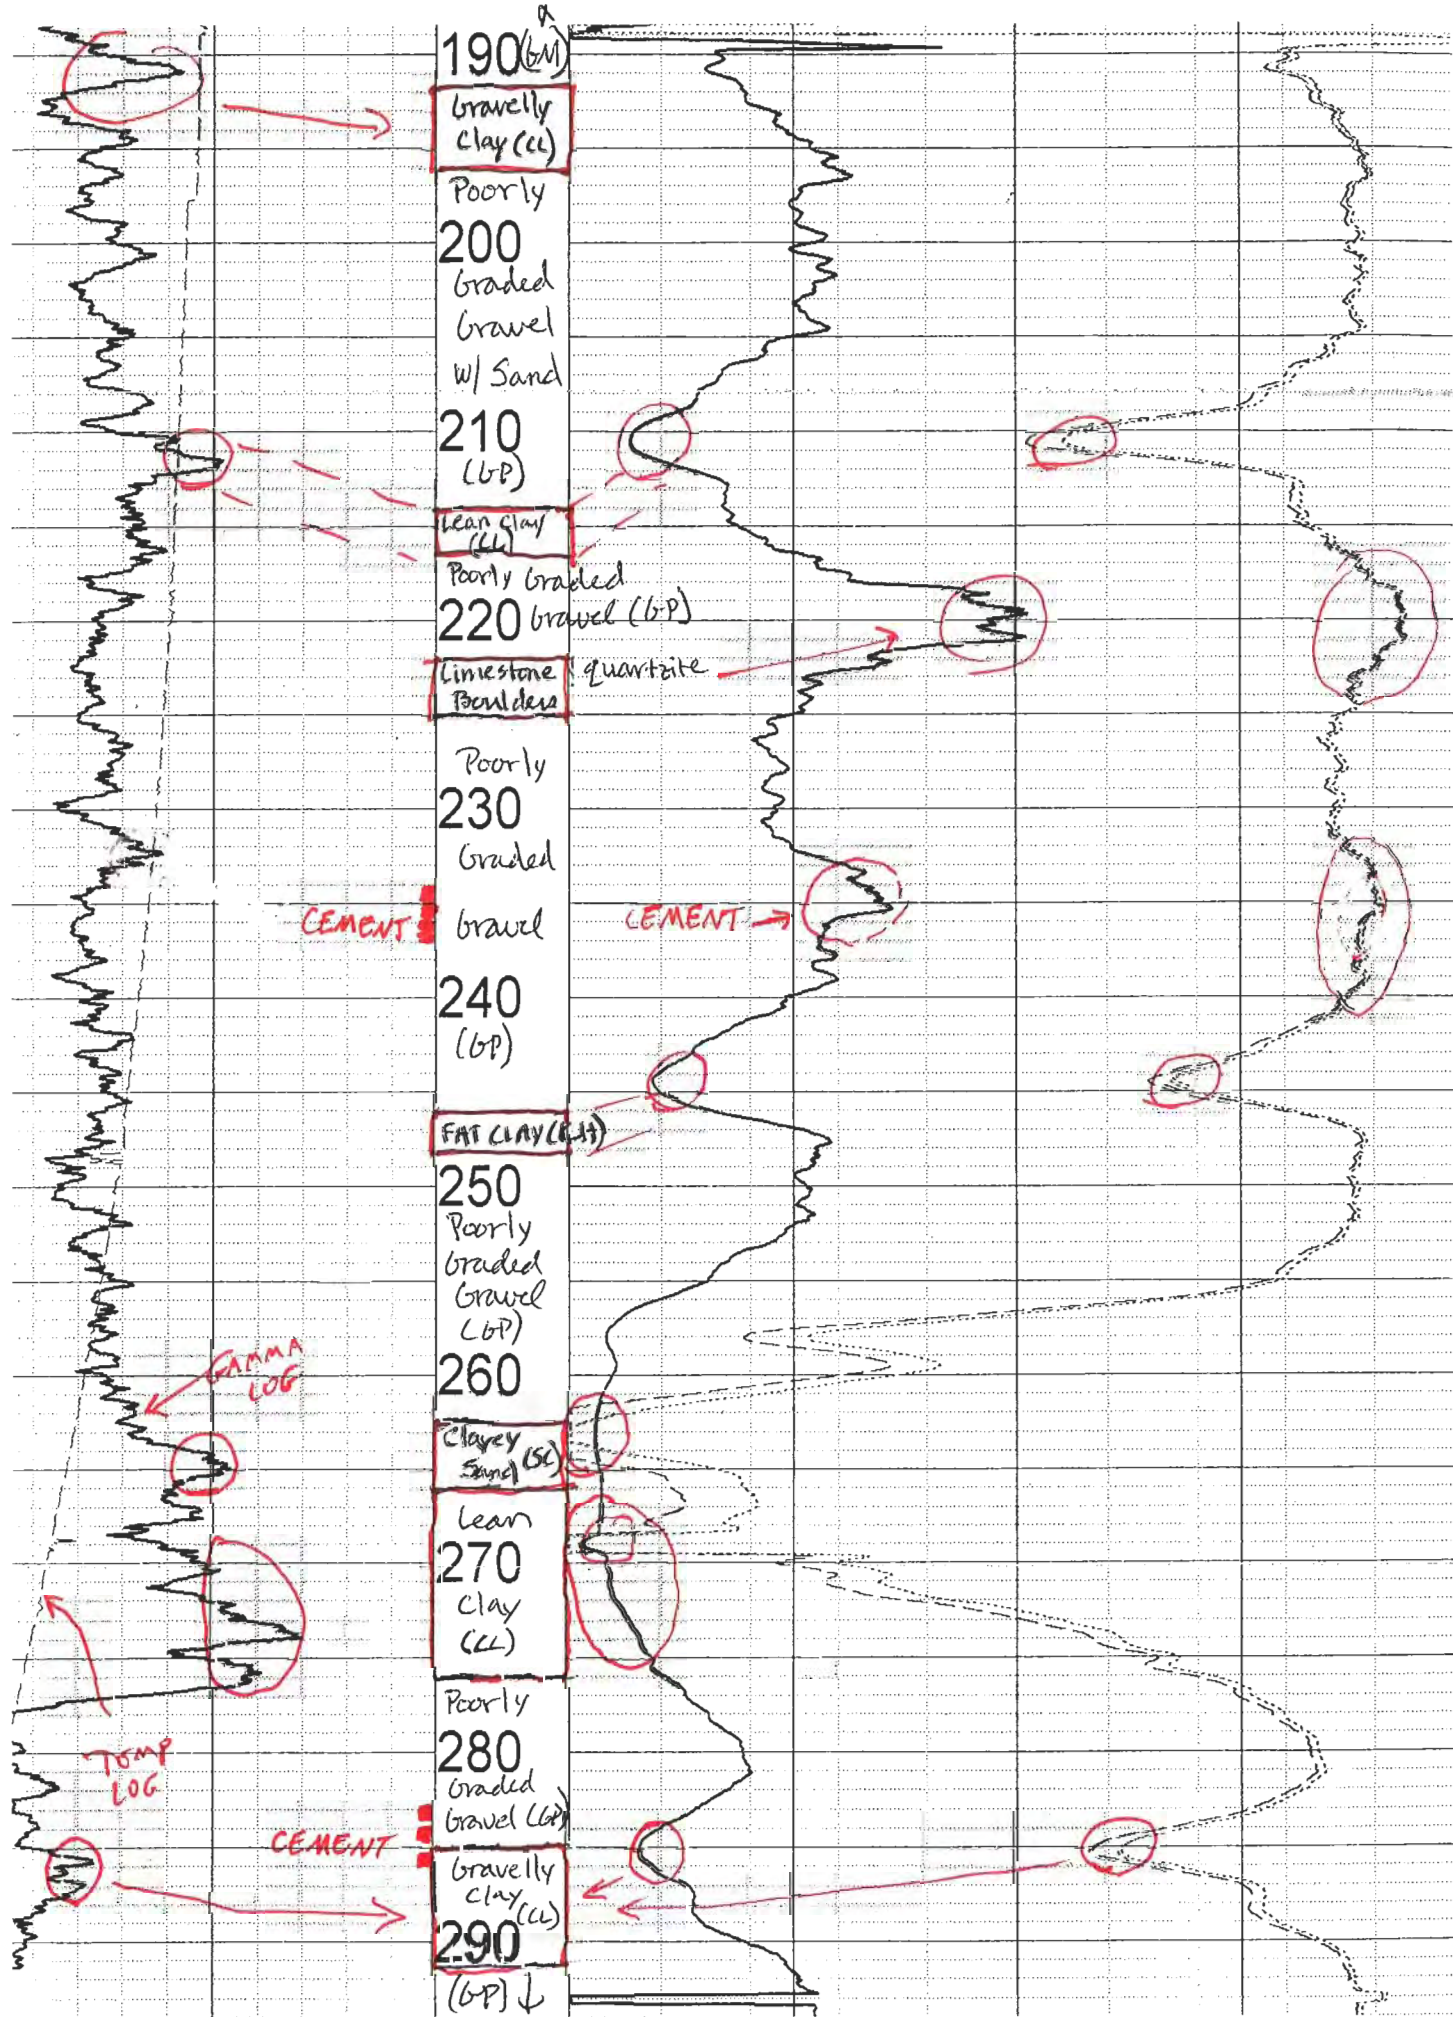 190 (GM)
Gravelly
Clay (CL)
Poorly
200
Graded
Gravel
W/ Sand
210
(GP)
Lean Clay
(CL)
Poorly Graded
220 Gravel (GP)
Limestone
Boulders
quartzite
Poorly
230
Graded
CEMENT
Gravel
CEMENT
240
(GP)
FAT CLAY (CH)
250
Poorly
Graded
Gravel
(GP)
260
GAMMA
LOG
Clayey
Sand (SC)
Lean
270
Clay
(CL)
Poorly
280
Graded
Gravel (GP)
TEMP
LOG
CEMENT
Gravelly
Clay
(CL)
290
(GP) ↓